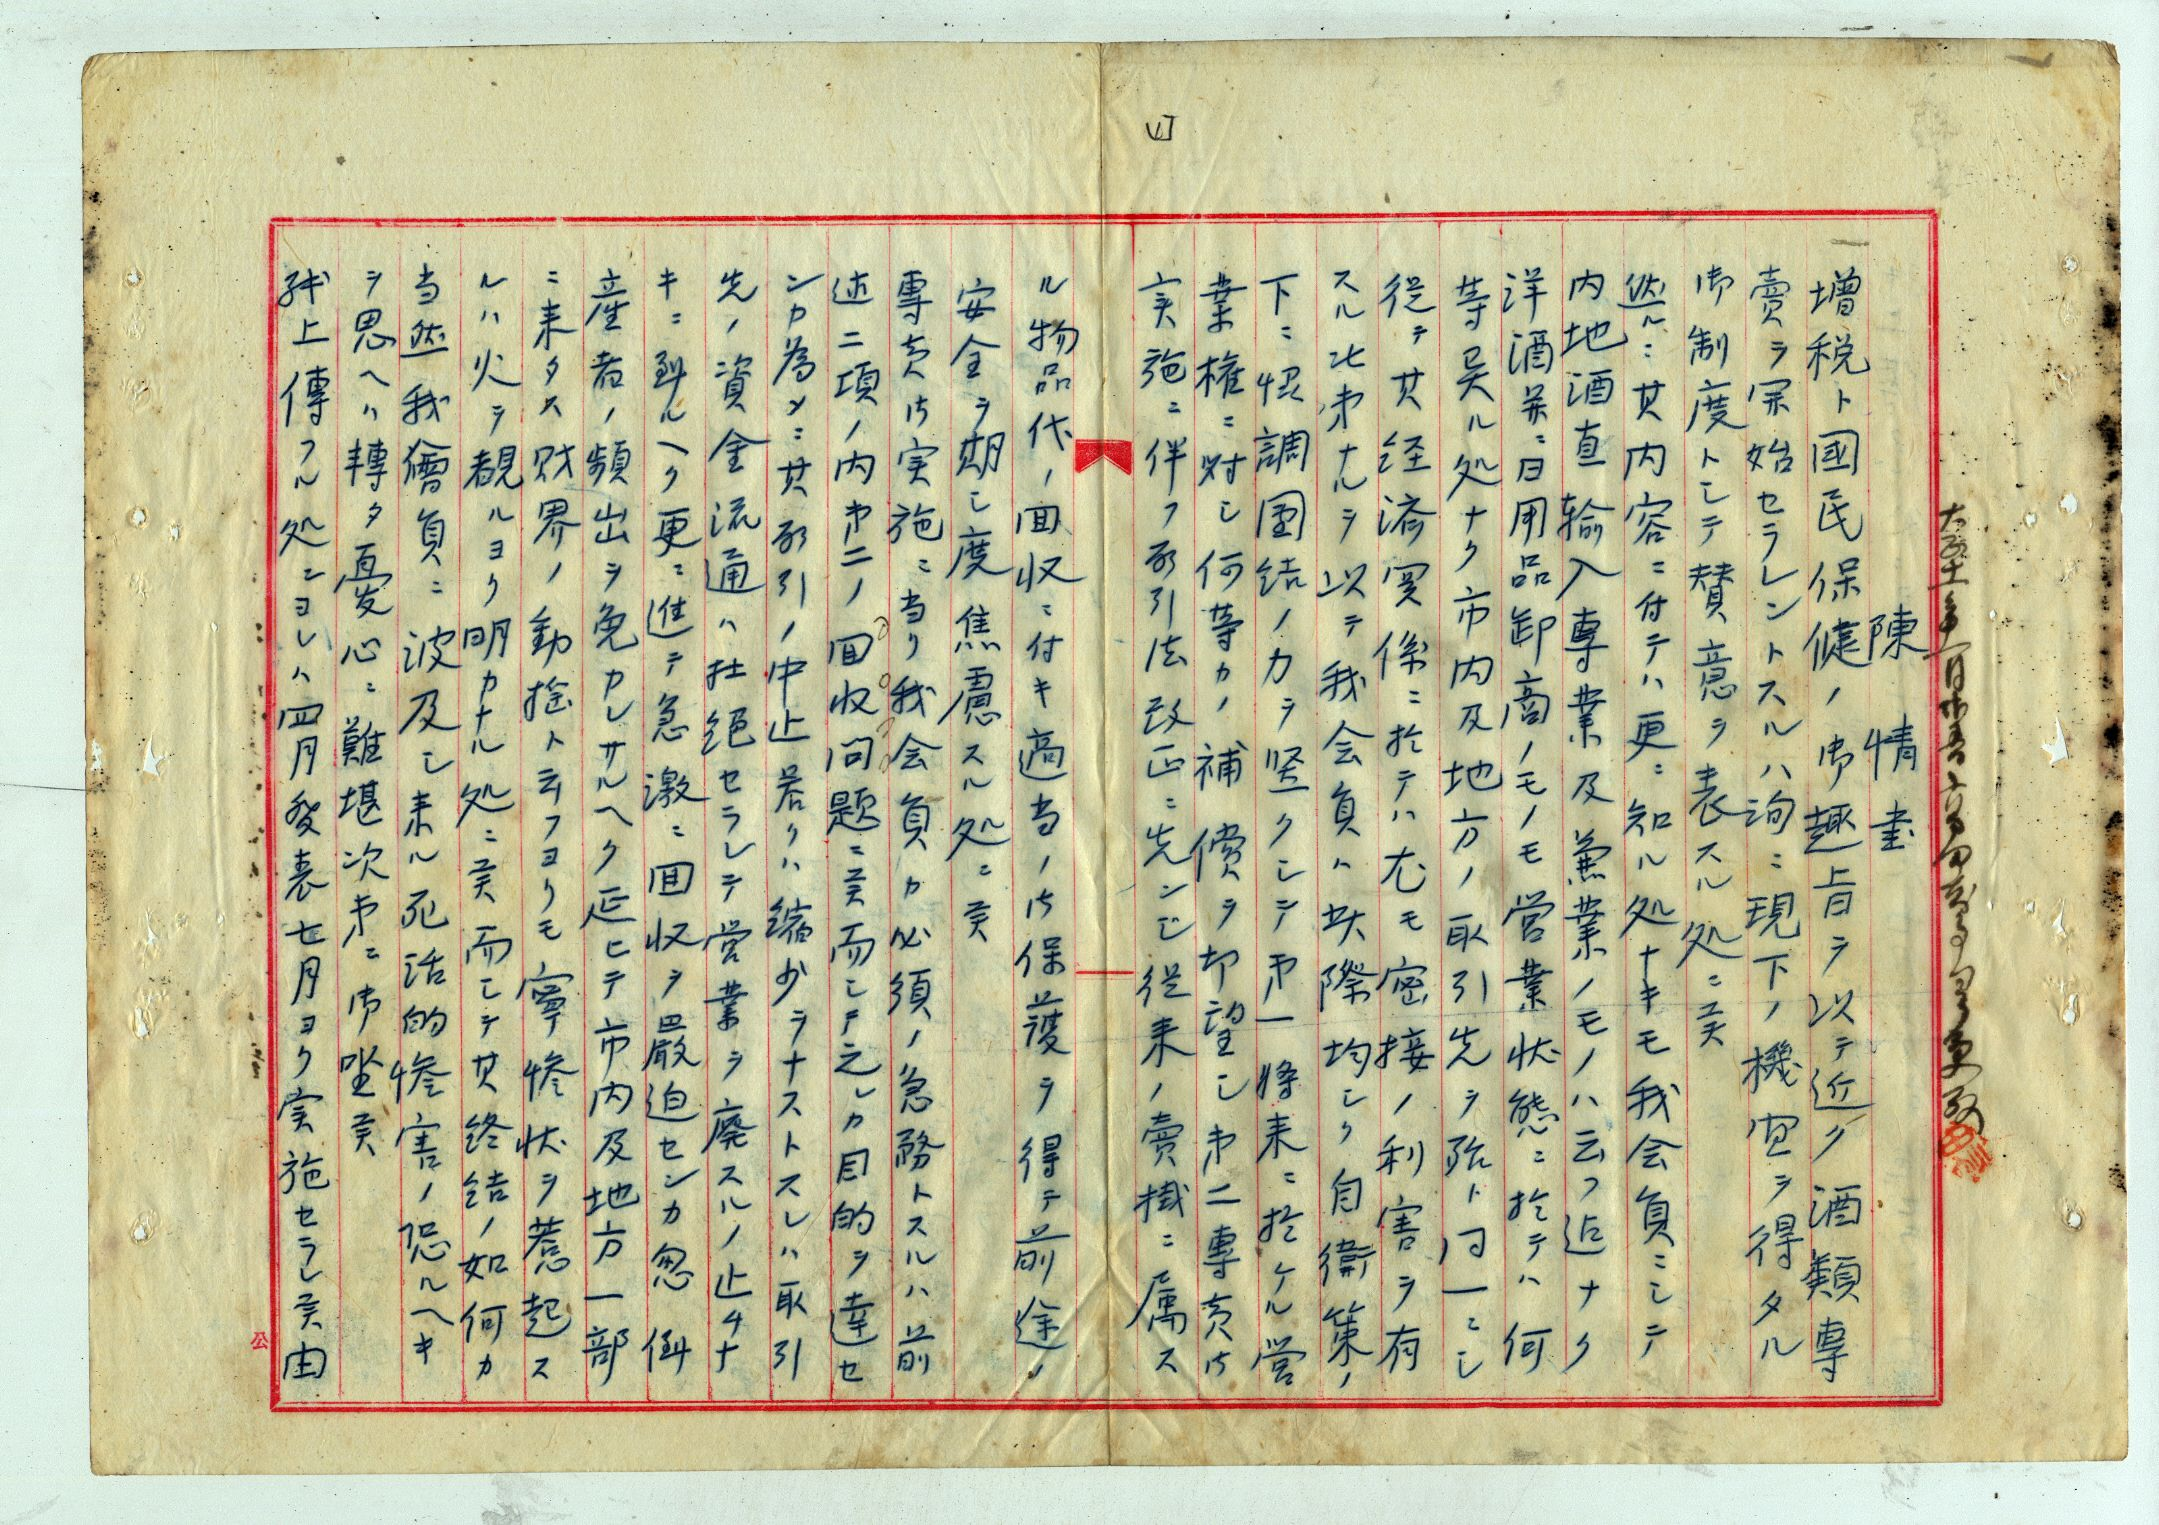 陳情書
増税ト國民保健ノ御趣旨ヲ以テ近ク酒類専
賣ヲ開始セラレントスルハ洵ニ現下ノ機宜ヲ得タル
御制度トシテ賛意ヲ表スル処ニ候
然ルニ其内容ニ付テハ更ニ知ル処ナキモ我会員ニシテ
内地酒直輸入専業及兼業ノモノハ云フ迄ナク
洋酒並ニ日用品卸商ノモノモ営業状態ニ於テハ何
等異ル処ナク市内及地方ノ取引先ヲ殆ト同一ニシ
従テ其経済関係ニ於テハ尤モ密接ノ利害ヲ有
スル次第ナルヲ以テ我会員ハ此際均シク自衛策ノ
下ニ協調團結ノ力ヲ堅クシテ第一将来ニ於ケル営
業権ニ対シ何等カノ補償ヲ切望シ第二専売法
実施ニ伴フ取引法改正ニ先ンジ従来ノ賣掛ニ属ス
ル物品代ノ回収ニ付キ適当ノ御保護ヲ得テ前途ノ
安全ヲ期シ度焦慮スル処ニ候
専売法実施ニ当リ我会員カ必須ノ急務トスルハ前
述二項ノ内第二ノ回収問題ニ候而シテ之レカ目的ヲ達セ
ンカ為メニ其取引ノ中止若クハ縮少ヲナストスレハ取引
先ノ資金流通ハ杜絶セラレテ営業ヲ廃スルノ止ムナ
キニ到ルヘク更ニ進テ急激ニ回収ヲ厳迫センカ忽倒
産者ノ頻出ヲ免カレサルヘク延ヒテ市内及地方一部
ニ来タス財界ノ動揺ト云フヨリモ寧惨状ヲ惹起ス
ルハ火ヲ観ルヨリ明カナル処ニ候而シテ其終結ノ如何カ
当然我會員ニ波及シ来ル死活的惨害ノ恐ルヘキ
ヲ思ヘハ轉タ憂心ニ難堪次第ニ御坐候
紙上傳フル処ニヨレハ四月発表七月ヨリ実施セラレ候由